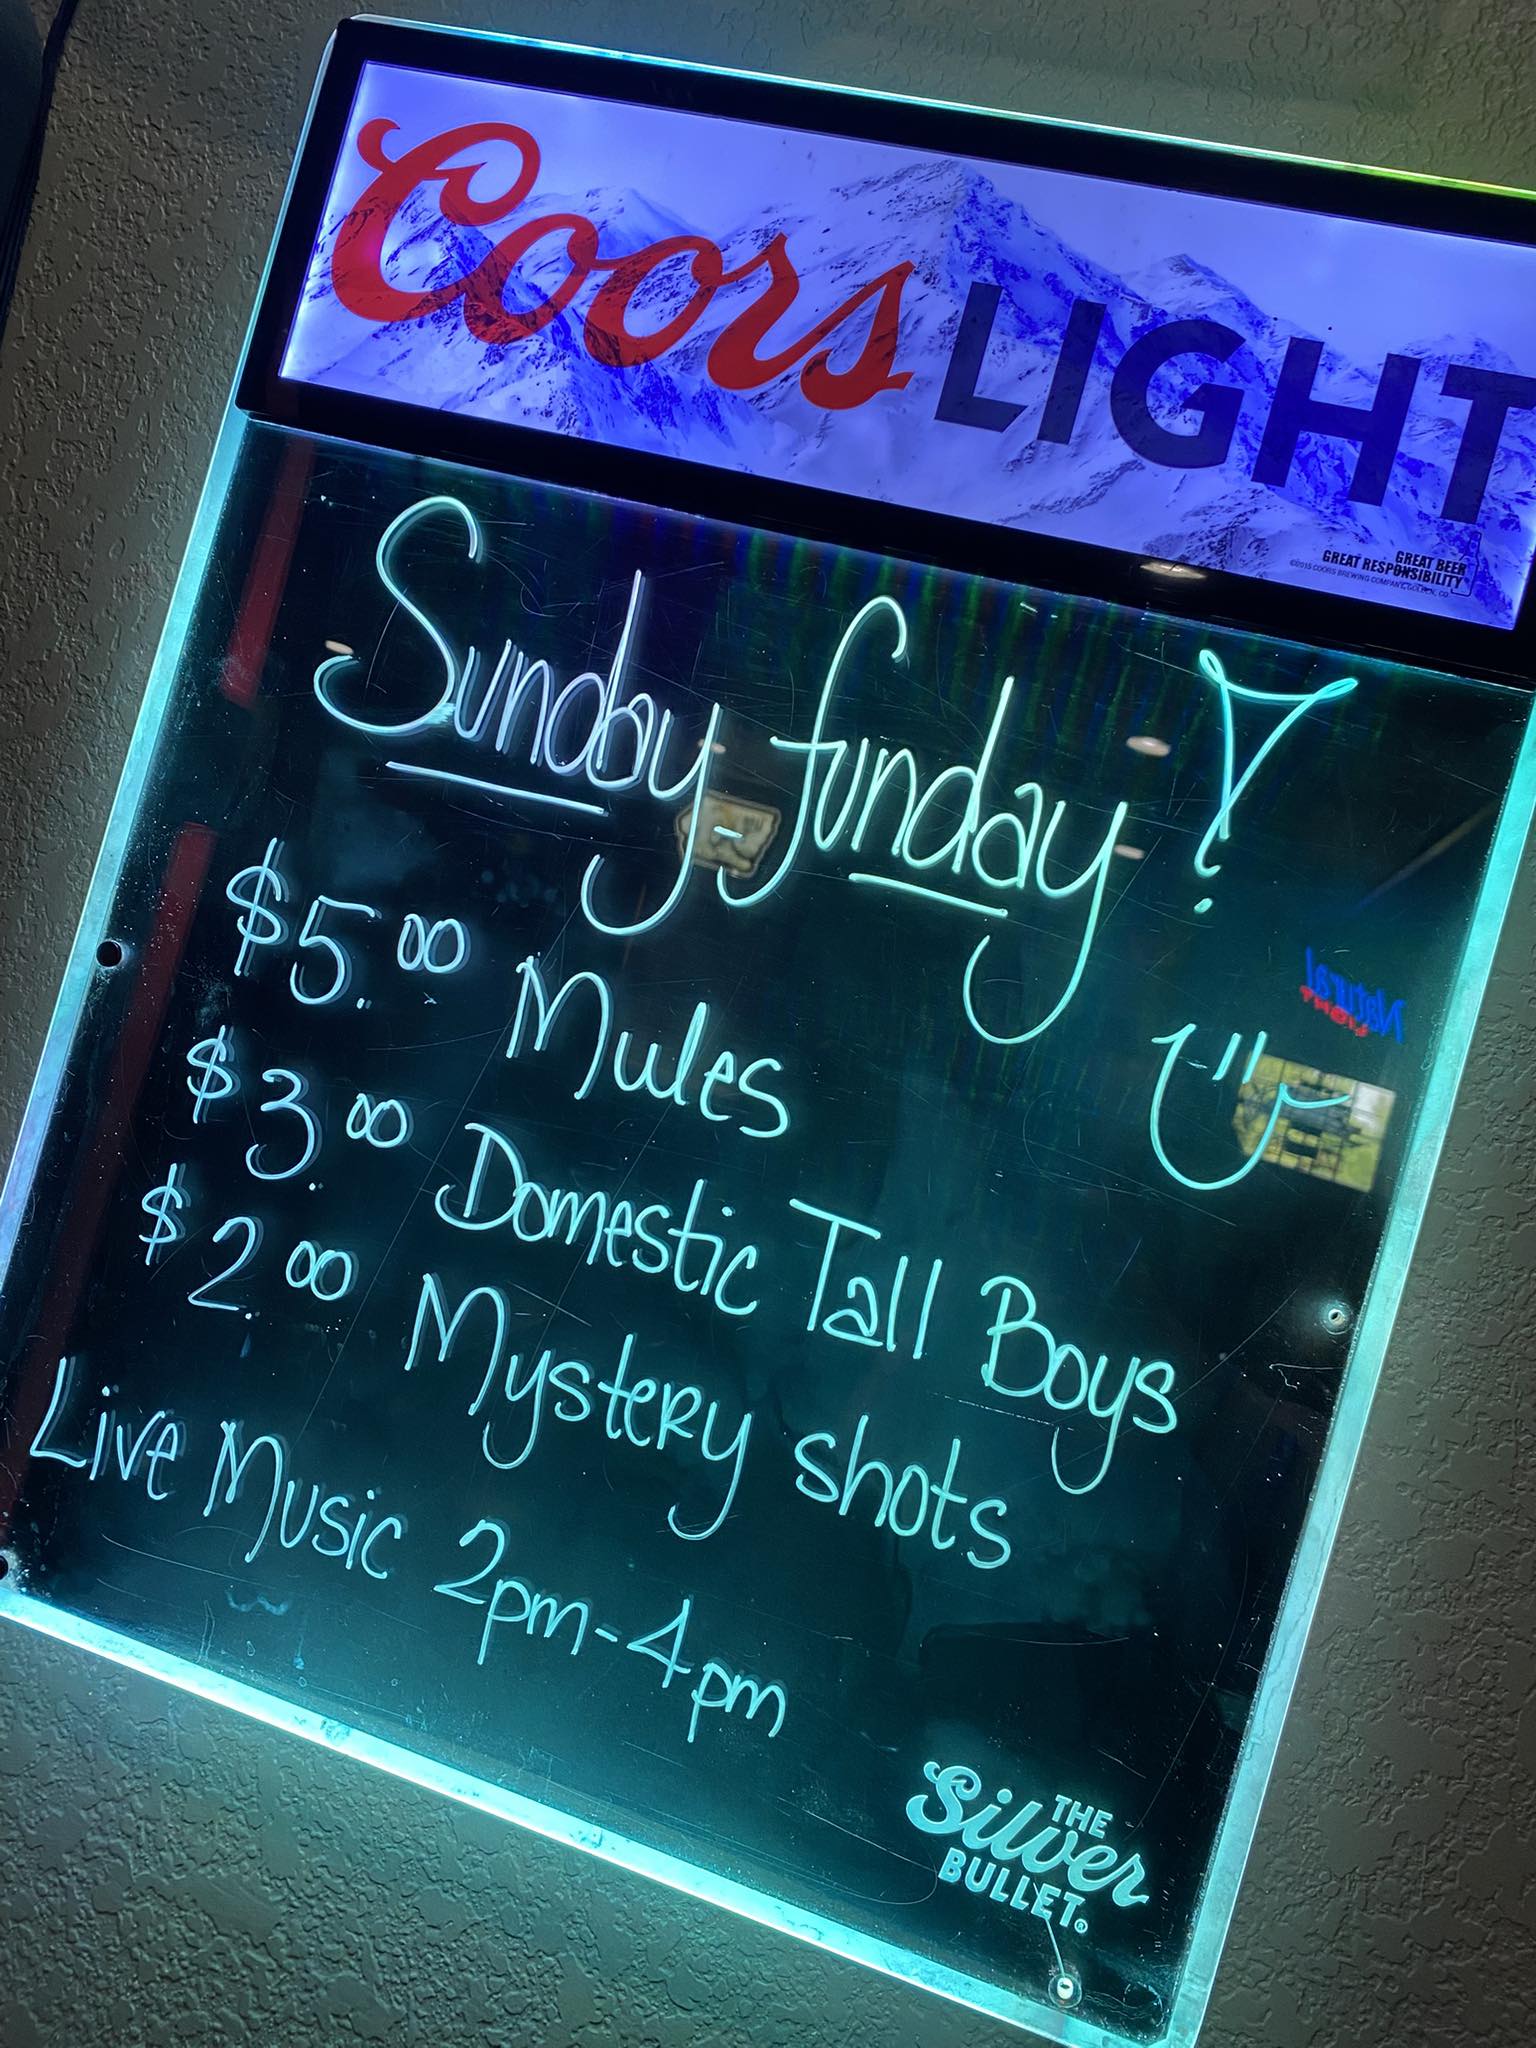 Coors LIGHT
GREAT BEER
GREAT RESPONSIBILITY
©2015 COORS BREWING COMPANY, GOLDEN, CO
Sunday funday!
$5.00 Mules
$3.00 Domestic Tall Boys
$2.00 Mystery shots
Live Music 2pm-4pm
Natural
LIGHT
THE
Silver
BULLET®